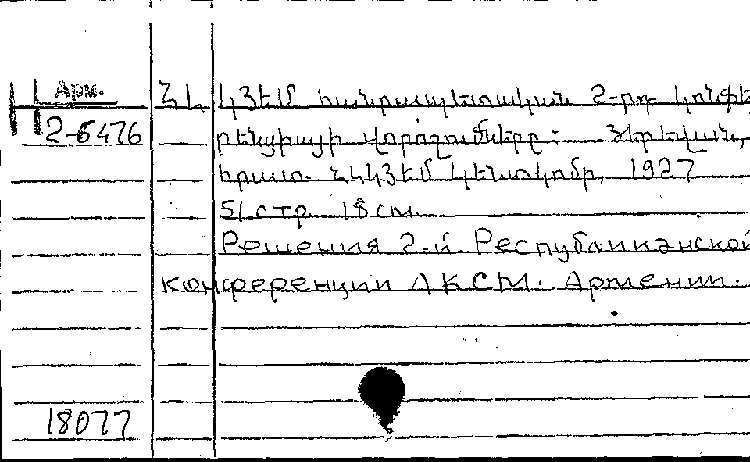 Арм.
2-6476
ՀԼԿՅԵՄ հանրապետական 2-րդ կոնֆե
րենցիայի վորոշումները: Յերեվան,
հրատ. ՀԼԿՅԵՄ կենտկոմի, 1927
51 стр. 18 см.
Решения 2-й Республиканской
конференции ЛКСМ. Армении.
18077